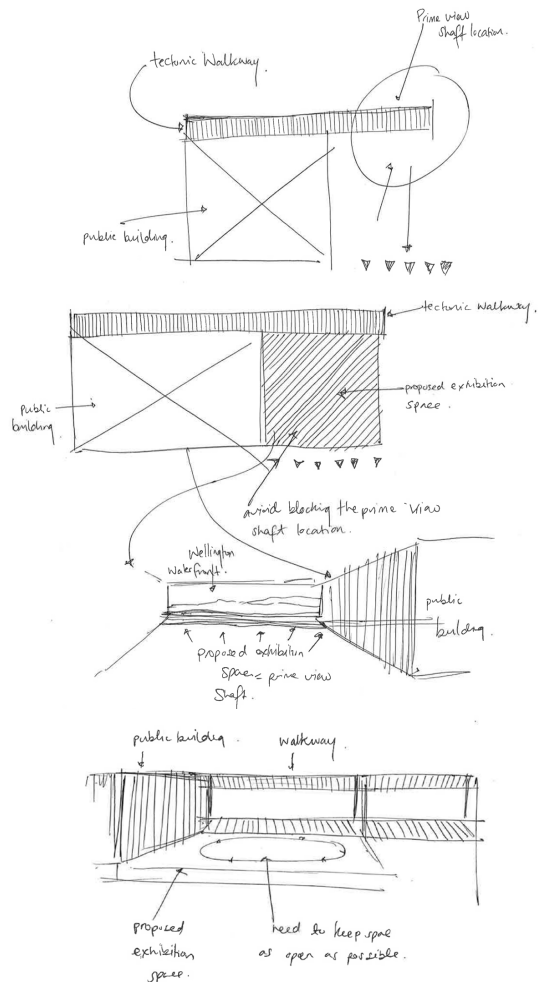 Prime view
shaft location.
tectonic Walkway.
public building.
tectonic walkway.
public
building.
proposed exhibition
space.
avoid blocking the prime view
shaft location.
Wellington
Waterfront.
public
building.
proposed exhibition
space = prime view
shaft.
public building.
walkway.
proposed
exhibition
space.
need to keep space
as open as possible.